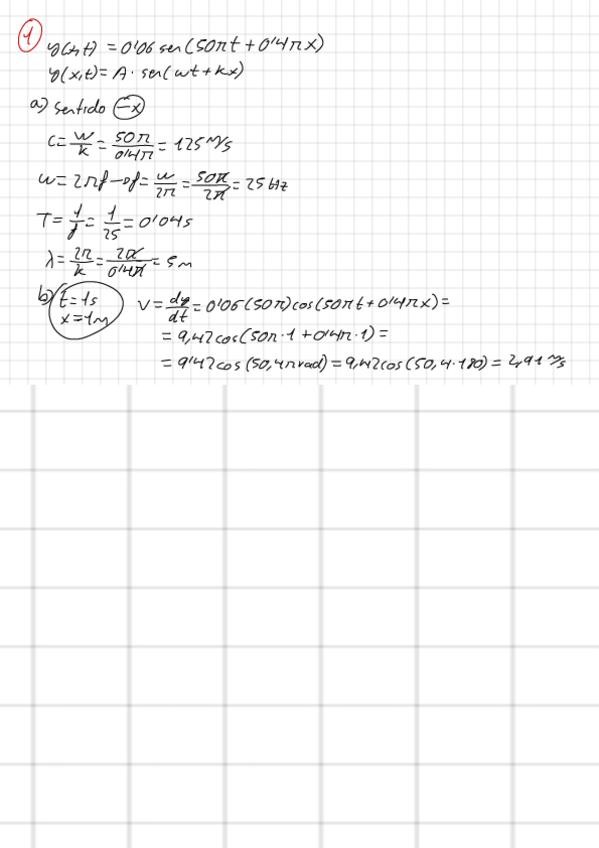 1
y(x,t) = 0'06 sen(50πt + 0'4πx)
y(x,t) = A · sen(wt + kx)
a) sentido -x
c = w/k = 50π/0'4π = 125 m/s
w = 2πf → f = w/2π = 50π/2π = 25 Hz
T = 1/f = 1/25 = 0'04s
λ = 2π/k = 2π/0'4π = 5m
b) t = 1s
x = 1m
v = dy/dt = 0'06(50π)cos(50πt + 0'4πx) =
= 9,42cos(50π·1 + 0'4π·1) =
= 9'42cos(50,4π rad) = 9,42cos(50,4·180) = 2,91 m/s